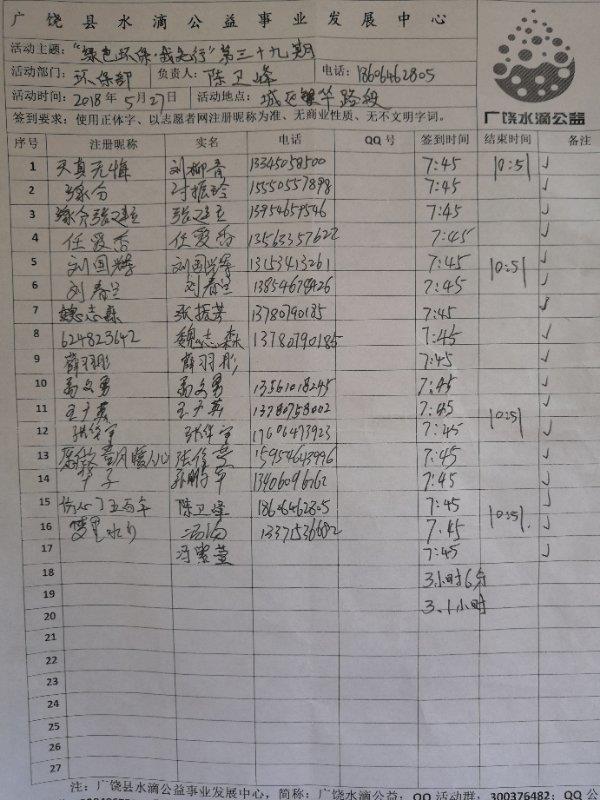 广饶县水滴公益事业发展中心
活动主题：“绿色环保·我先行”第三十九期
活动部门：环保部 负责人：陈卫峰 电话：18606462805
活动时间：2018年5月27日 活动地点：城区 华路段
广饶水滴公益
签到要求：使用正体字、以志愿者网注册昵称为准、无商业性质、无不文明字词。
序号 注册昵称 实名 电话 QQ号 签到时间 结束时间 备注
1 天真无悔 刘柳青 13345058500 7:45 10:51 √
2 缘分 付振玲 15550557898 7:45 √
3 缘分 张 13954659546 7:45 √
4 任爱香 任爱香 13563357622 7:45 √
5 刘国辉 刘国辉 13153413261 7:45 10:51 √
6 刘春兰 刘春兰 13854678426 7:45 √
7 魏志森 张振芳 13780790185 7:45 √
8 624823642 魏志森 13780790185 7:45 √
9 薛羽彤 薛羽彤 7:45 √
10 高文勇 高文勇 13561018245 7:45 √
11 王 王 13780758002 7:45 10:51 √
12 张 张 17606473923 7:45 √
13 暖人心 张 15954643996 7:45 √
14 华子 孙鹏华 13406096262 7:45 √
15 陈卫峰 18606462805 7:45 10:51 √
16 梦里水乡 13371536682 7:45 √
17 冯 萱 7:45 √
18 3小时6分
19 3.1小时
20
21
22
23
24
25
26
27
注：广饶县水滴公益事业发展中心，简称：广饶水滴公益；QQ活动群，300376482；QQ公